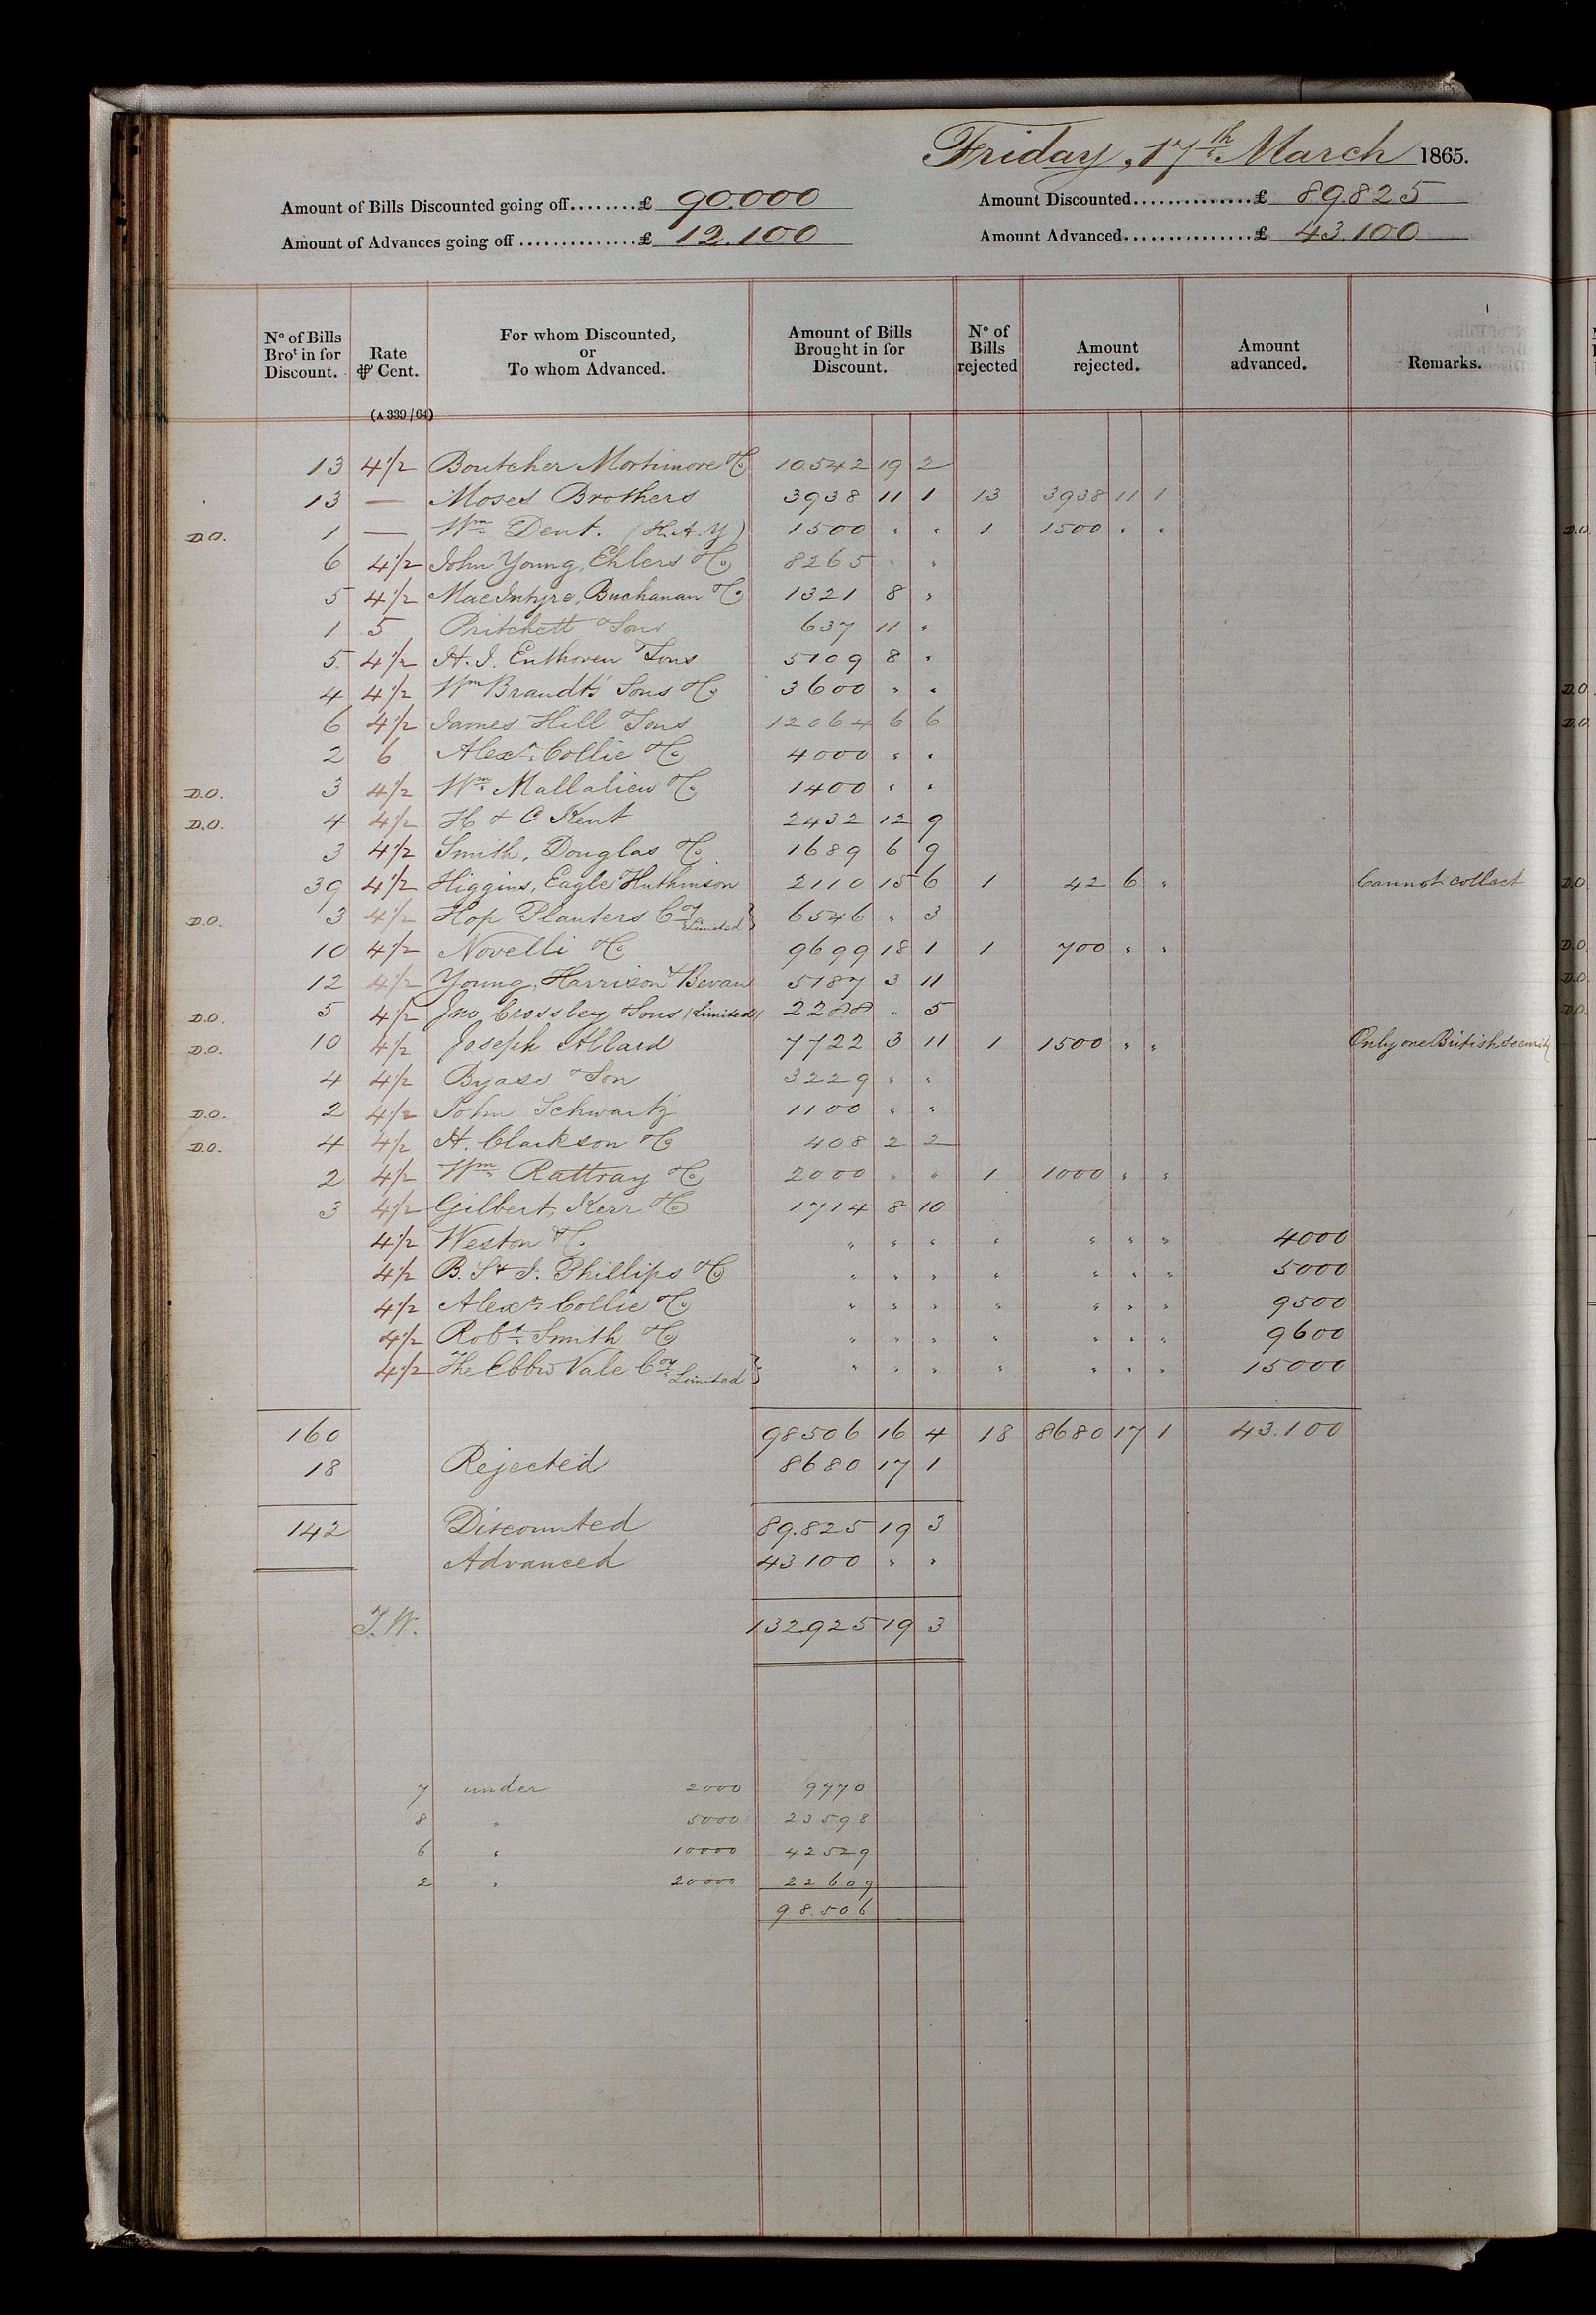 Friday, 17th March 1865.
Amount of Bills Discounted going off........£ 90.000 Amount Discounted...............£ 89.825
Amount of Advances going off ...............£ 12.100 Amount Advanced................£ 43.100
No of Bills Brot in for Discount. Rate ⅌ Cent. For whom Discounted, or To whom Advanced. Amount of Bills Brought in for Discount. No of Bills rejected Amount rejected. Amount advanced. Remarks.
(A 339/64)
13 4½ Boutcher Mortimore & Co 10542 19 2
13 — Moses Brothers 3938 11 1 13 3938 11 1
D.O. 1 — Wm Dent. (H.A.Y) 1500 " " 1 1500 " "
6 4½ John Young, Ehlers & Co 8265 " "
5 4½ MacIntyre, Buchanan & Co 1321 8 "
1 5 Pritchett & Sons 637 11 "
5 4½ H. J. Enthoven & Sons 5109 8 "
4 4½ Wm Brandt's Sons & Co 3600 " "
6 4½ James Hill & Sons 12064 6 6
2 6 Alexr Collie & Co 4000 " "
D.O. 3 4½ Wm Mallalieu & Co 1400 " "
D.O. 4 4½ H & C Kent 2432 12 9
3 4½ Smith, Douglas & Co 1689 6 9
39 4½ Higgins, Eagle & Huthinson 2110 15 6 1 42 6 " Cannot collect
D.O. 3 4½ Hop Planters Coy Limited } 6546 " 3
10 4½ Novelli & Co 9699 18 1 1 700 " "
12 4½ Young, Harrison & Bevan 5187 3 11
D.O. 5 4½ Jno Crossley & Sons (Limited) 2288 " 5
D.O. 10 4½ Joseph Allard 7722 3 11 1 1500 " " Only one British security
4 4½ Byass & Son 3229 " "
D.O. 2 4½ John Schwartz 1100 " "
D.O. 4 4½ H. Clarkson & Co 408 2 2
2 4½ Wm Rattray & Co 2000 " " 1 1000 " "
3 4½ Gilbert, Kerr & Co 1714 8 10
4½ Weston & Co " " " " " " " 4000
4½ B. S & J. Phillips & Co " " " " " " " 5000
4½ Alexr Collie & Co " " " " " " " 9500
4½ Robt Smith & Co " " " " " " " 9600
4½ The Ebbw Vale Coy Limited } " " " " " " " 15000
160 98506 16 4 18 8680 17 1 43.100
18 Rejected 8680 17 1
142 Discounted 89.825 19 3
Advanced 43100 " "
J.W. 132925 19 3
7 under 2000 9770
8 " 5000 23598
6 " 10000 42529
2 " 20000 22609
98.506